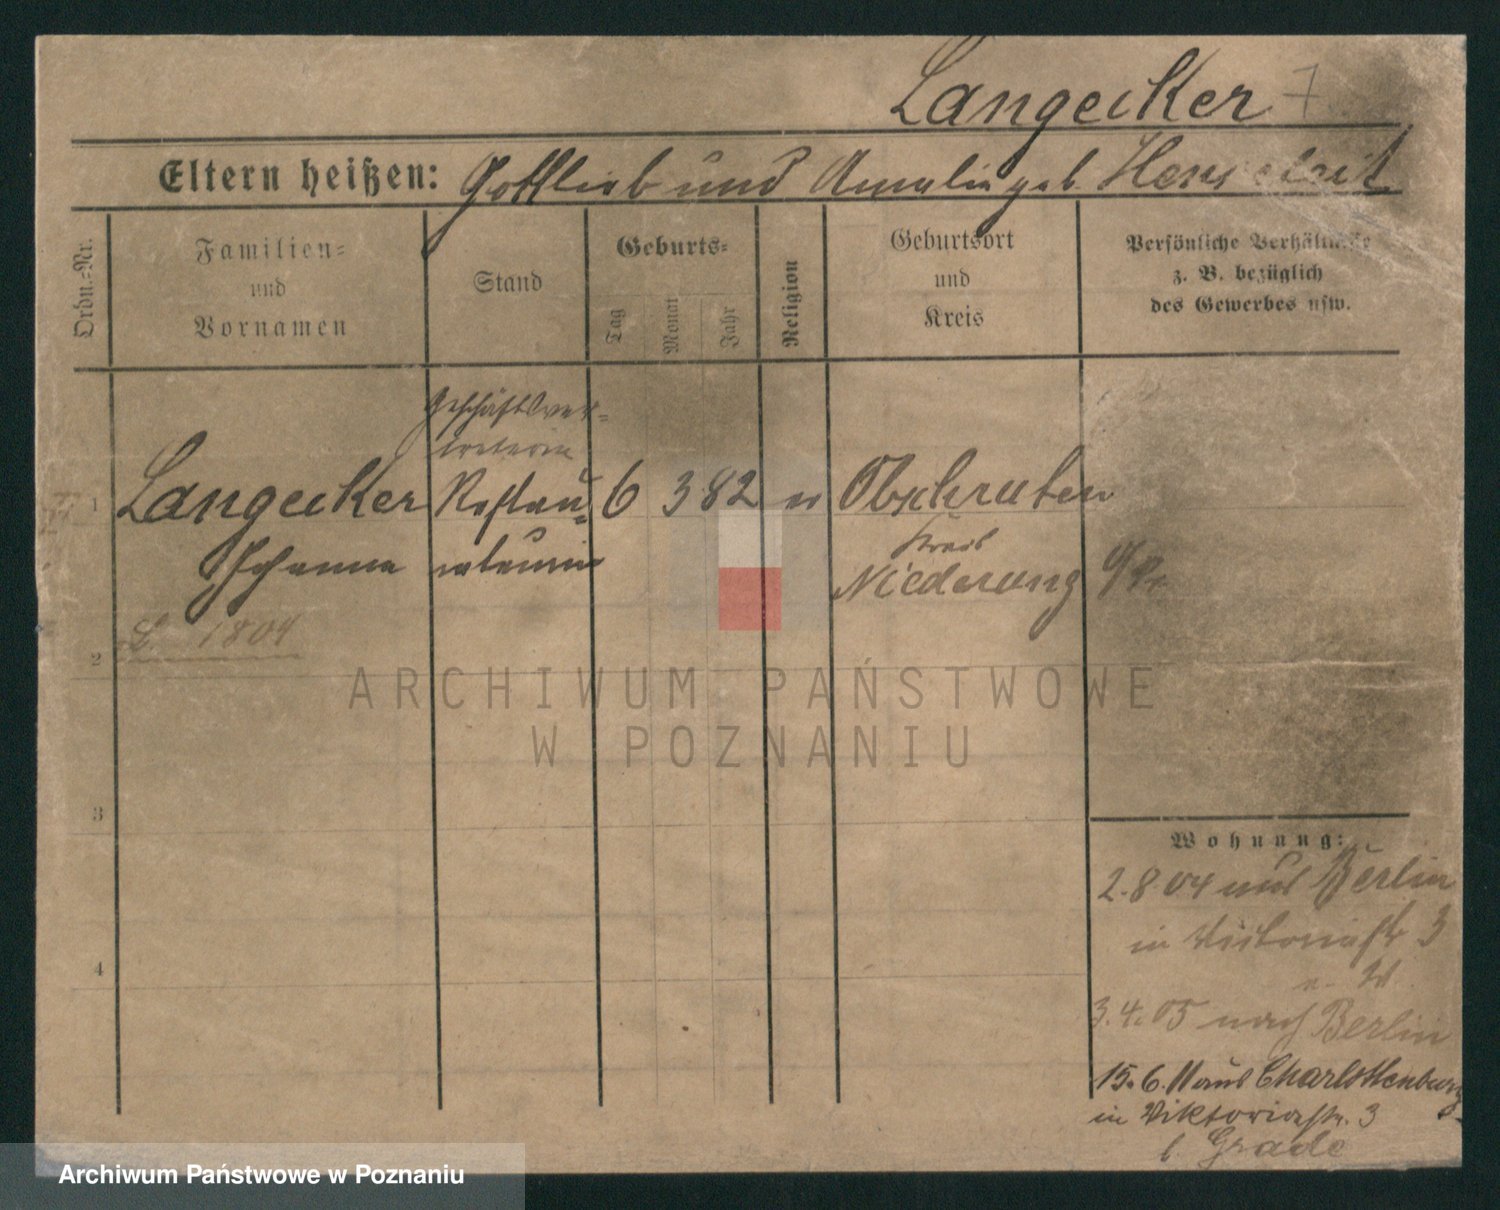 Langecker 7
Eltern heißen: Gottlieb und Amalie geb.
Ordn.-Nr.
Familien-
und
Vornamen
Stand
Geburts-
Tag
Monat
Jahr
Religion
Geburtsort
und
Kreis
Persönliche Verhältnisse
z. B. bezüglich
des Gewerbes usw.
Geschäftsver-
treterin
1 Langecker Restau- 6 3 82 ev Obschruten
Johanna rateurin Kreis
Niederung
L. 1804
2
3
4
Wohnung:
2.8 04 aus Berlin
in Victoriastr 3
3.4.05 nach Berlin
15.6.11 aus Charlottenburg
in Viktoriastr. 3
b Grade
ARCHIWUM PAŃSTWOWE
W POZNANIU
Archiwum Państwowe w Poznaniu